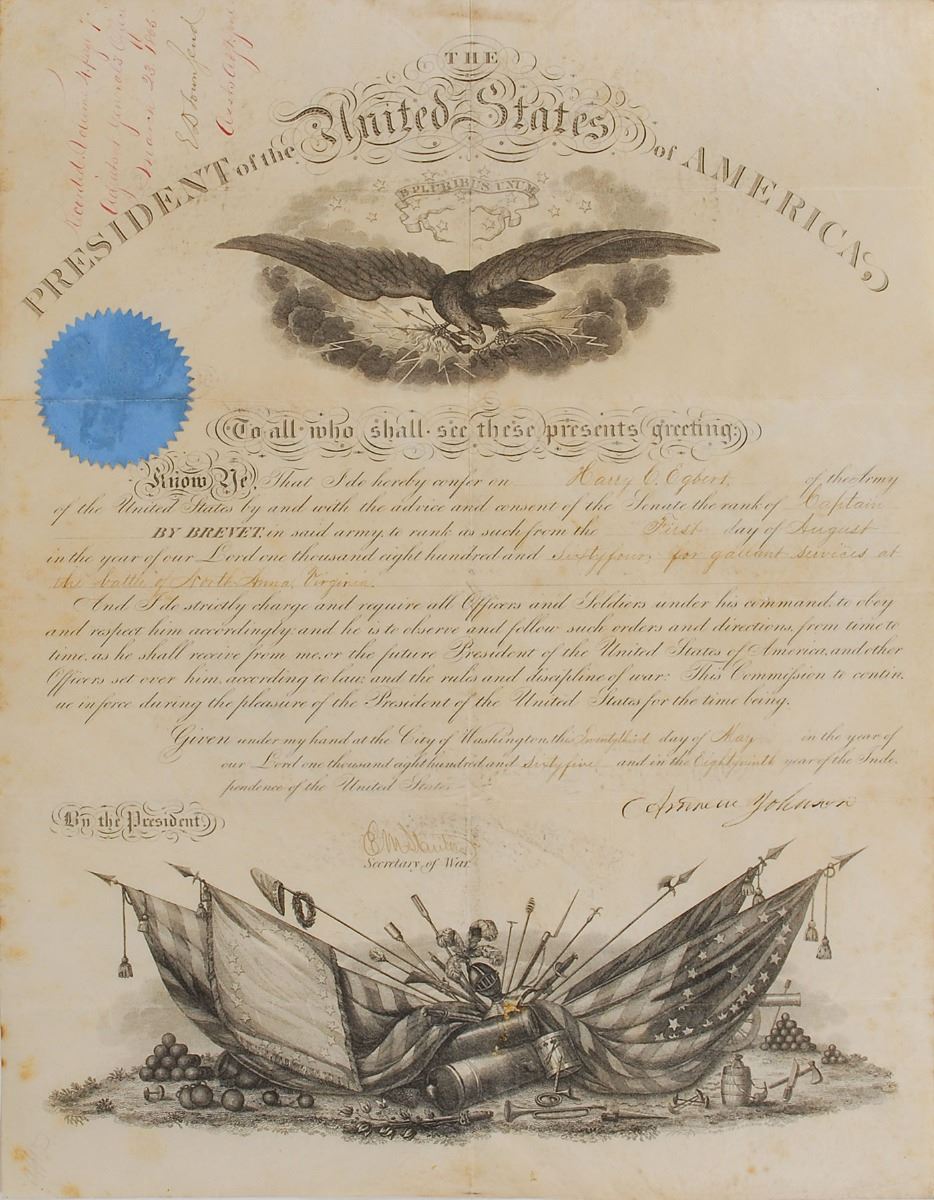 THE
United States
PRESIDENT of the of AMERICA,
E PLURIBUS UNUM
Adjutant General's Office
23 1865
E D Townsend
To all who shall see these presents greeting:
Know Ye, That I do hereby confer on Harry C. Egbert, of the Army
of the United States by and with the advice and consent of the Senate the rank of Captain
BY BREVET, in said army, to rank as such from the First day of August
in the year of our Lord one thousand eight hundred and sixtyfour, for gallant services at
the battle of North Anna, Virginia.
And I do strictly charge and require all Officers and Soldiers under his command, to obey
and respect him accordingly: and he is to observe and follow such orders and directions, from time to
time, as he shall receive from me, or the future President of the United States of America, and other
Officers set over him, according to law, and the rules and discipline of war: This Commission to contin,
ue in force during the pleasure of the President of the United States for the time being.
Given under my hand at the City of Washington, this Twentythird day of May in the year of
our Lord one thousand eight hundred and sixtyfive and in the Eightyninth year of the Inde-
pendence of the United States
Andrew Johnson
By the President,
E M Stanton
Secretary of War.